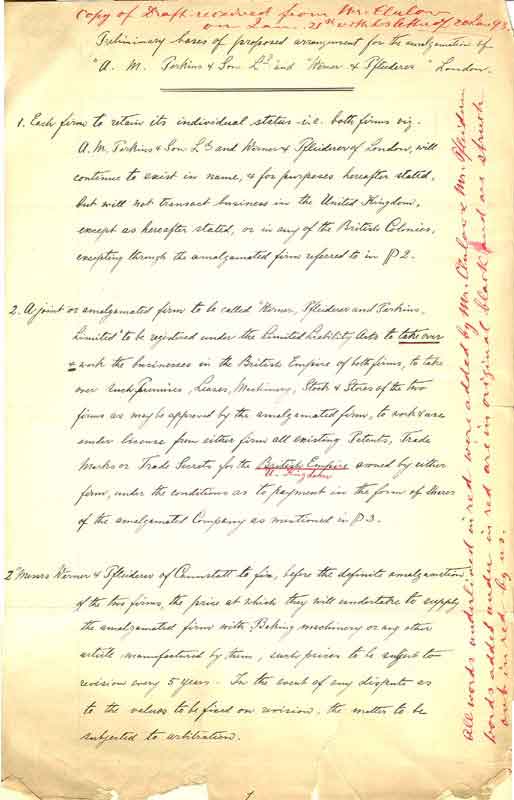 Copy of Draft received from Mr. 
on Jan. 21st with letter of 20 Jan 93.
Preliminary bases of proposed arrangement for the amalgamation of
"A. M. Perkins & Son Ld" and "Werner & Pfleiderer" London.
1. Each firm to retain its individual status - i.e. both firms viz.
A. M. Perkins & Son Ld and Werner & Pfleiderer of London, will
continue to exist in name, & for purposes hereafter stated,
but will not transact business in the United Kingdom,
except as hereafter stated, or in any of the British Colonies,
excepting through the amalgamated firm referred to in P 2.
2. A joint or amalgamated firm to be called "Werner, Pfleiderer and Perkins,
Limited" to be registered under the Limited Liability Acts to take over
& work the businesses in the British Empire of both firms, to take
over such Premises, Leases, Machinery, Stock & Stores of the two
firms as may be approved by the amalgamated firm, to work & use
under license from either firm all existing Patents, Trade
Marks or Trade Secrets for the British Empire owned by either
U. Kingdom
firm, under the conditions as to payment in the form of shares
of the amalgamated Company as mentioned in P 3.
2a Messrs Werner & Pfleiderer of Cannstatt to fix, before the definite amalgamation
of the two firms, the price at which they will undertake to supply
the amalgamated firm with Baking machinery or any other
article manufactured by them, such prices to be subject to
revision every 5 years. In the event of any dispute as
to the values to be fixed on revision, the matter to be
subjected to arbitration.
All words underlined in red were added by Mr. & Mr. Pfleiderer
words added under in red are in original black and are struck
out in red by us.